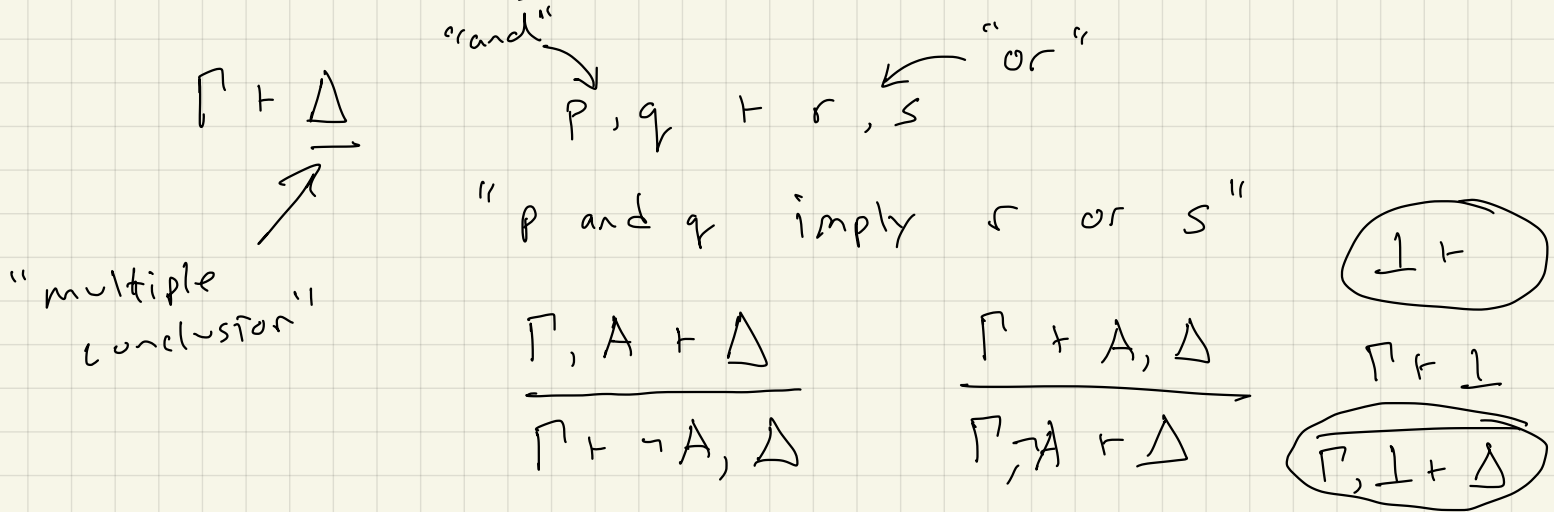 "and"
"or"
Γ ⊢ Δ
p, q ⊢ r, s
"p and q imply r or s"
"multiple
conclusion"
⊥ ⊢
Γ, A ⊢ Δ
Γ ⊢ ¬A, Δ
Γ ⊢ A, Δ
Γ, ¬A ⊢ Δ
Γ ⊢ ⊥
Γ, ⊥ ⊢ Δ